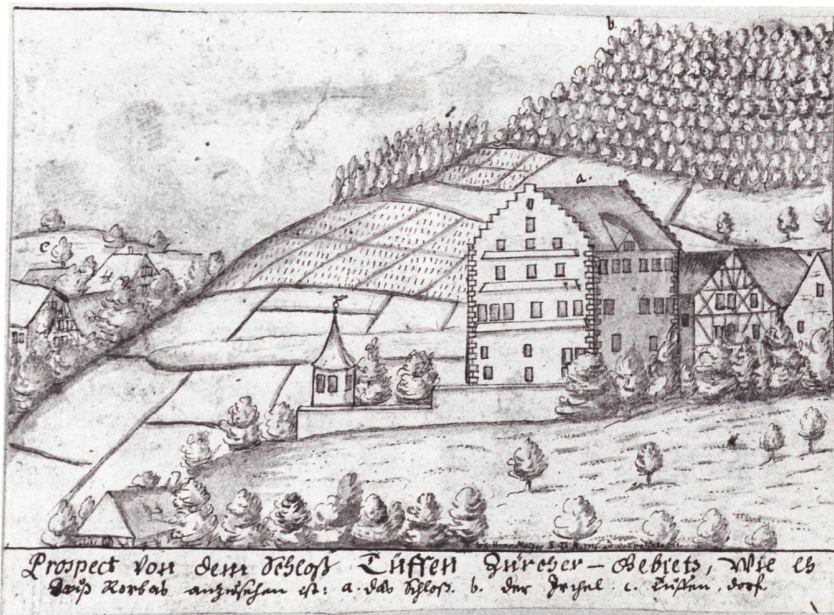 b.
a.
c
Prospect von dem Schloß Tüffen Zürcher-Gebiets, Wie es
Rorbas anzusehen ist: a. das Schloß. b. der Irchel. c. Tüffen, dorf.